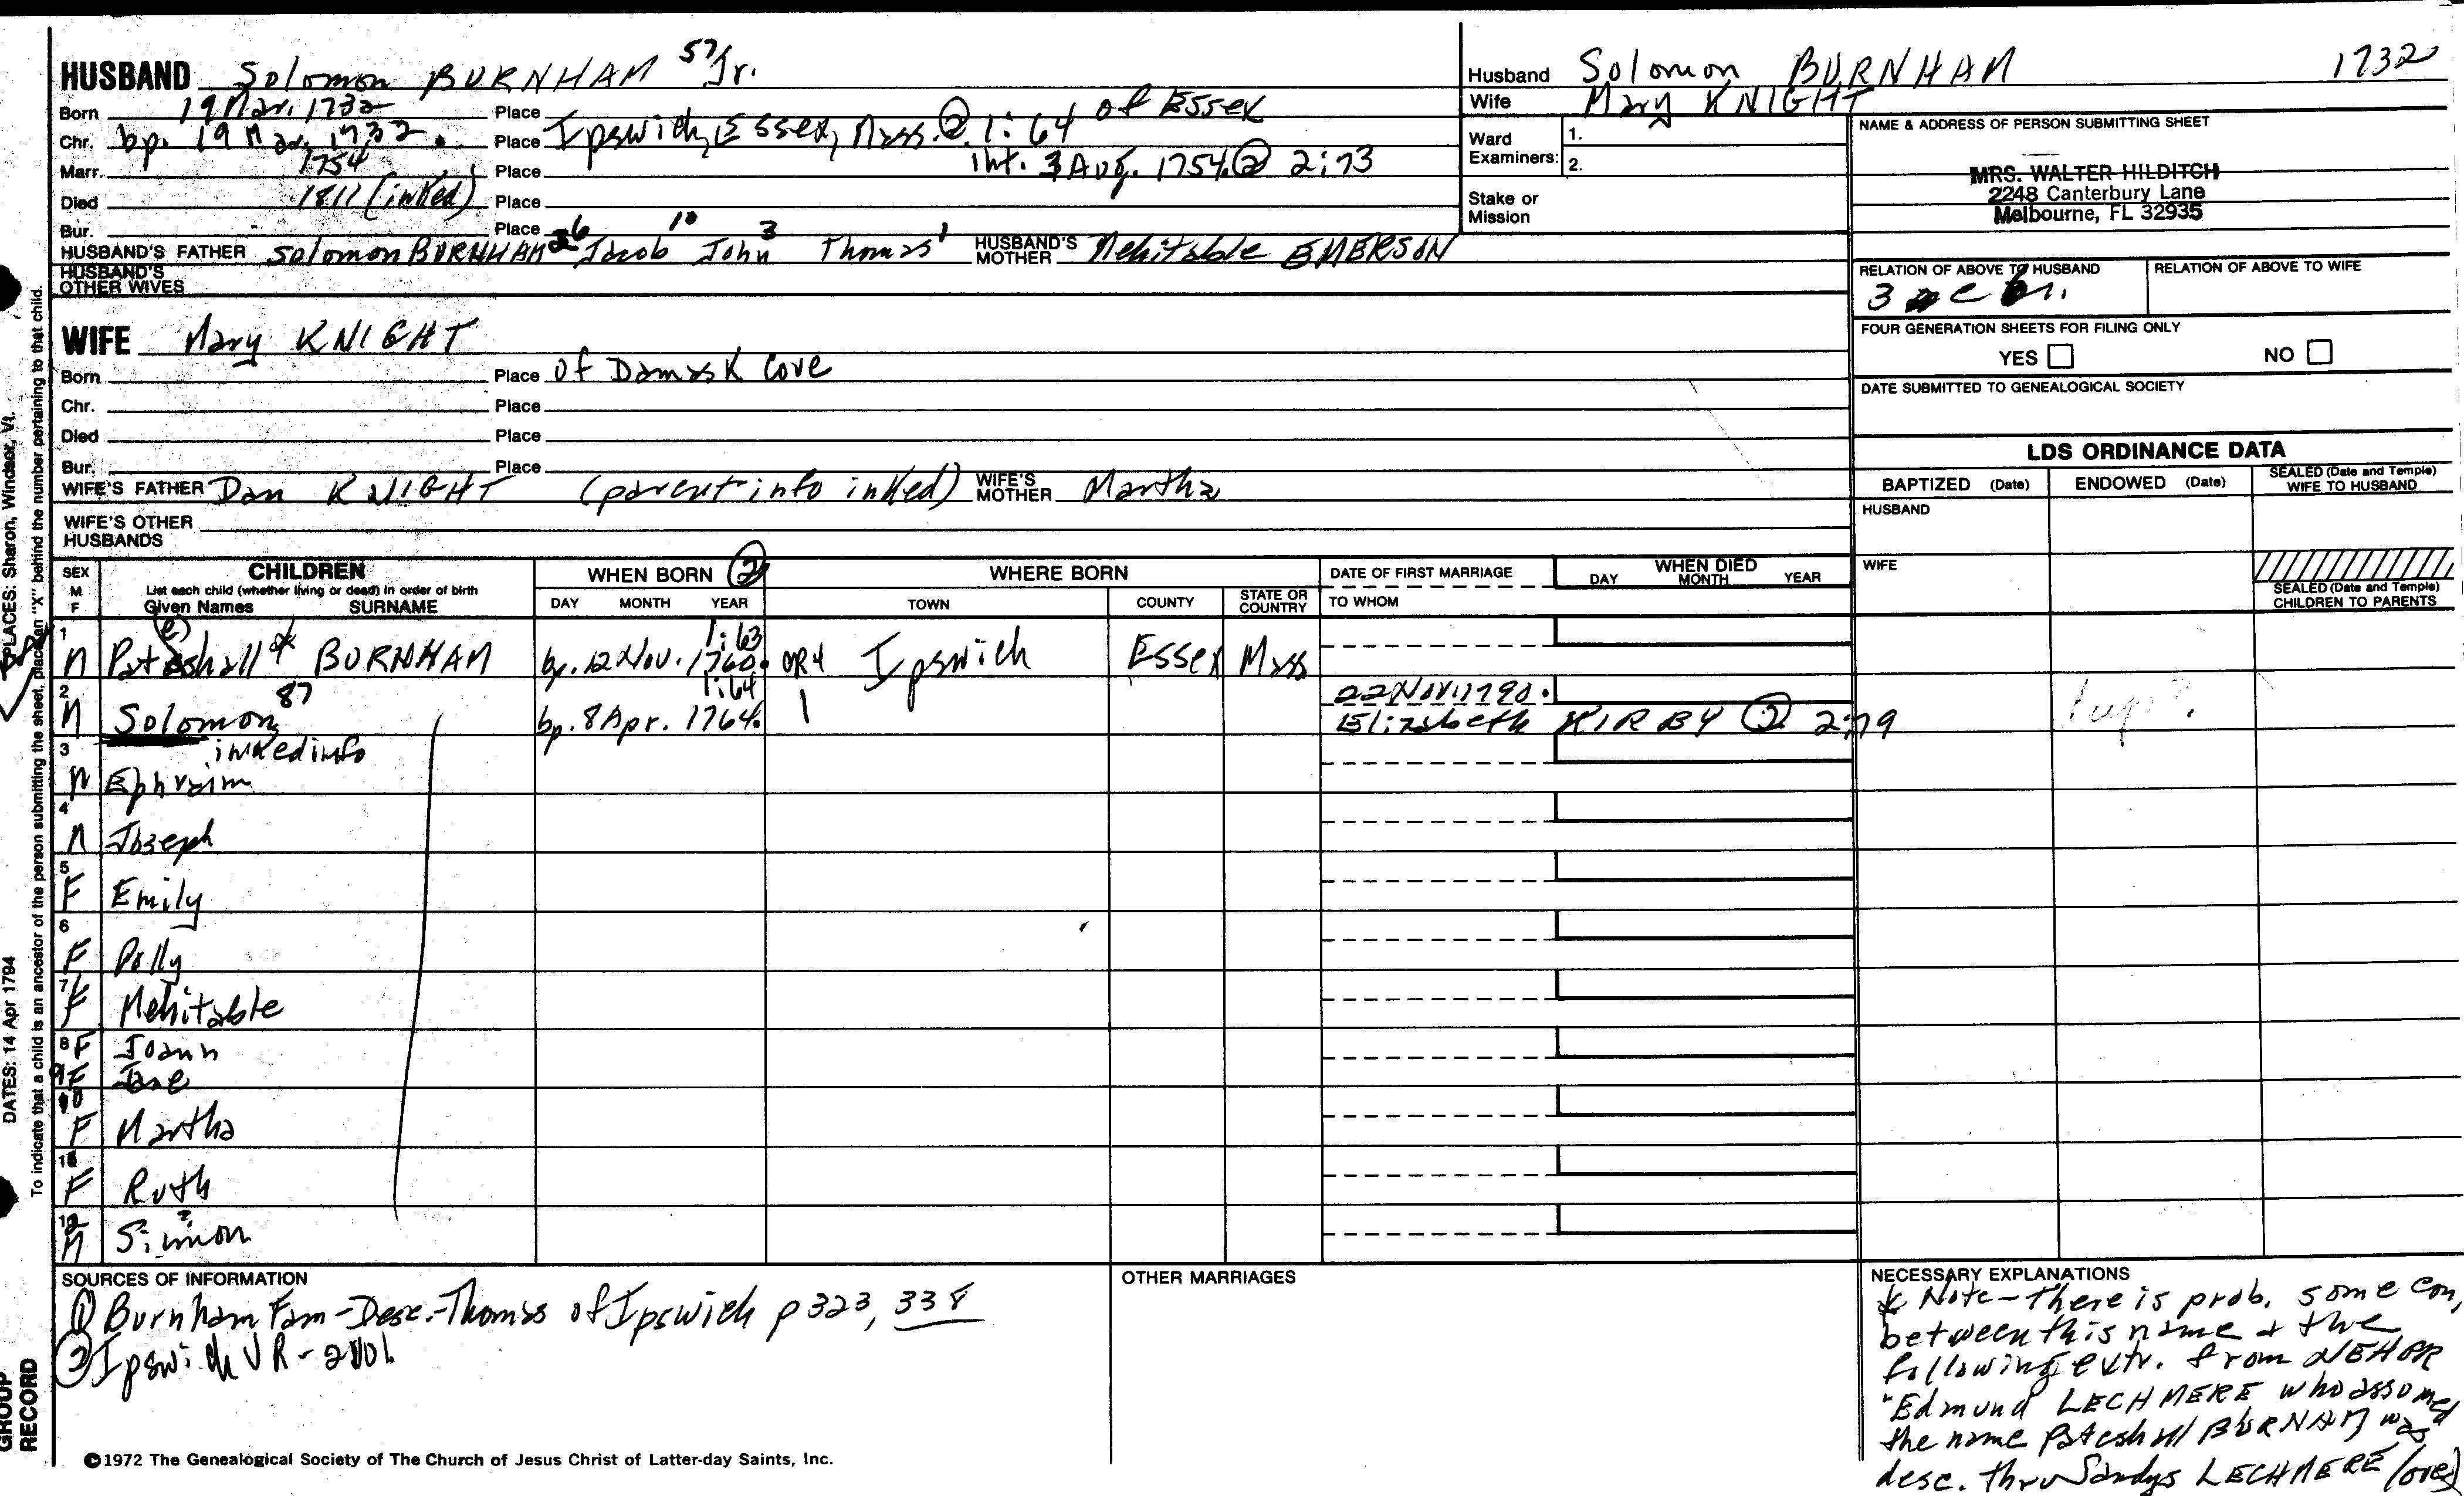 HUSBAND Solomon BURNHAM 57 Jr.
Born 19 Mar. 1732 Place
Chr. bp. 19 Mar. 1732. Place Ipswich, Essex, Mass. ② 1:64 of Essex
Marr. 1754 Place int. 3 Aug. 1754 ② 2:73
Died 1811 (inked) Place
Bur. Place
HUSBAND'S FATHER Solomon BURNHAM 26 Jacob 10 John 3 Thomas 1 HUSBAND'S MOTHER Mehitable EMERSON
HUSBAND'S OTHER WIVES
Husband Solomon BURNHAM 1732
Wife Mary KNIGHT
Ward Examiners: 1.
2.
Stake or Mission
NAME & ADDRESS OF PERSON SUBMITTING SHEET
MRS. WALTER HILDITCH
2248 Canterbury Lane
Melbourne, FL 32935
RELATION OF ABOVE TO HUSBAND RELATION OF ABOVE TO WIFE
3
FOUR GENERATION SHEETS FOR FILING ONLY
YES NO
DATE SUBMITTED TO GENEALOGICAL SOCIETY
WIFE Mary KNIGHT
Born Place of Damask Cove
Chr. Place
Died Place
Bur. Place
WIFE'S FATHER Dan KNIGHT (parent info inked) WIFE'S MOTHER Martha
WIFE'S OTHER HUSBANDS
LDS ORDINANCE DATA
BAPTIZED (Date) ENDOWED (Date) SEALED (Date and Temple) WIFE TO HUSBAND
HUSBAND
WIFE
SEALED (Date and Temple) CHILDREN TO PARENTS
SEX M F
CHILDREN
List each child (whether living or dead) in order of birth
Given Names SURNAME
WHEN BORN ②
DAY MONTH YEAR
WHERE BORN
TOWN COUNTY STATE OR COUNTRY
DATE OF FIRST MARRIAGE
TO WHOM
WHEN DIED
DAY MONTH YEAR
1 M Pateshall (e) * BURNHAM bp. 12 Nov. 1760. 1:63 CR4 Ipswich Essex Mass
2 M Solomon 87 bp. 8 Apr. 1764. 1:64 22 Nov. 1790. Elizabeth KIRBY ② 2:79
inked info
3 M Ephraim
4 M Joseph
5 F Emily
6 F Polly
7 F Mehitable
8 F Joann
9 F Jane
10 F Martha
11 F Ruth
12 M Simon ?
SOURCES OF INFORMATION
① Burnham Fam - Desc. - Thomas of Ipswich p 323, 338
② Ipswich VR - 2 vol.
OTHER MARRIAGES
NECESSARY EXPLANATIONS
* Note - there is prob. some con.
between this name & the
following extr. from NEHGR
"Edmund LECHMERE who assumed
the name Pateshall BURNHAM was
desc. thru Sandys LECHMERE (over)
©1972 The Genealogical Society of The Church of Jesus Christ of Latter-day Saints, Inc.
PLACES: Sharon, Windsor, Vt.
DATES: 14 Apr 1794
To indicate that a child is an ancestor of the person submitting the sheet, place an "X" behind the number pertaining to that child.
GROUP RECORD